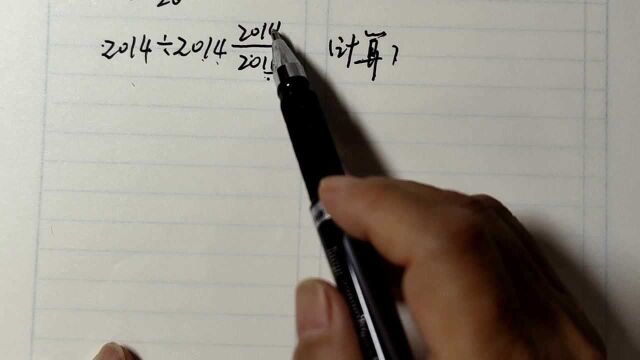 20
2014÷2014 2014/201 (计算)